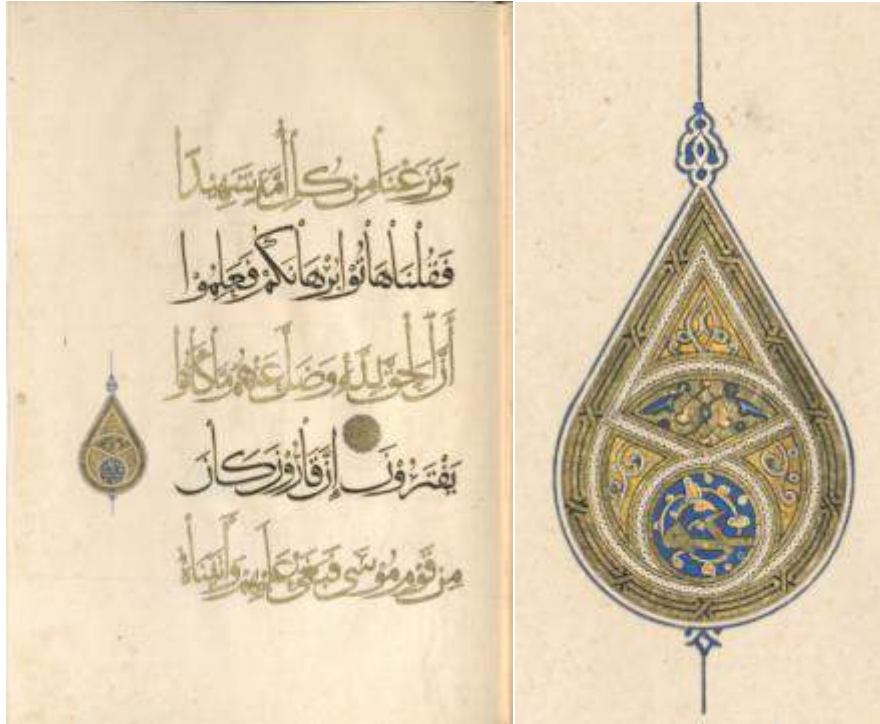 وَنَزَعْنَا مِن كُلِّ أُمَّةٍ شَهِيدًا
فَقُلْنَا هَاتُوْا بُرْهَانَكُمْ فَعَلِمُوْا
أَنَّ الْحَقَّ لِلَّهِ وَضَلَّ عَنْهُم مَّا كَانُوا
يَفْتَرُوْنَ إِنَّ قَارُوْنَ كَانَ
مِن قَوْمِ مُوْسَى فَبَغَى عَلَيْهِمْ وَأٰتَيْنَاهُ